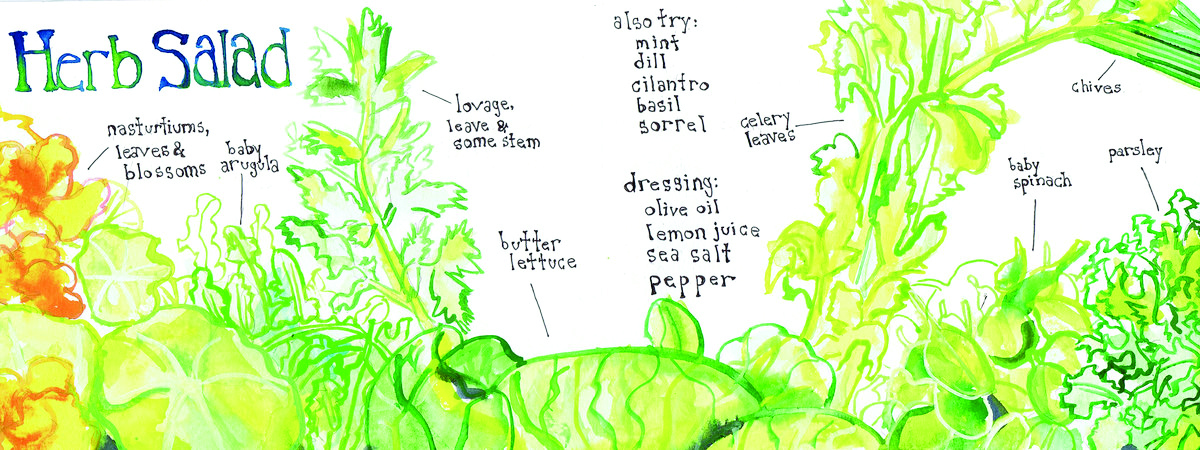 Herb Salad
nasturtiums,
leaves &
blossoms
baby
arugula
lovage,
leave &
some stem
butter
lettuce
also try:
mint
dill
cilantro
basil
sorrel
dressing:
olive oil
lemon juice
sea salt
pepper
celery
leaves
chives
baby
spinach
parsley